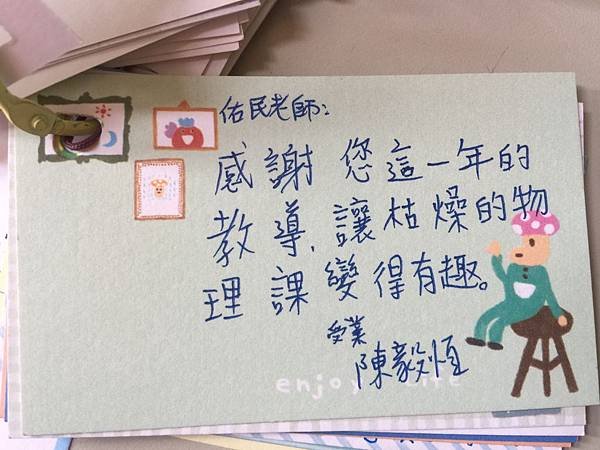 佑民老師：
感謝 您這一年的
教導，讓枯燥的物
理課變得有趣。
受業
陳毅恒
enjoy life